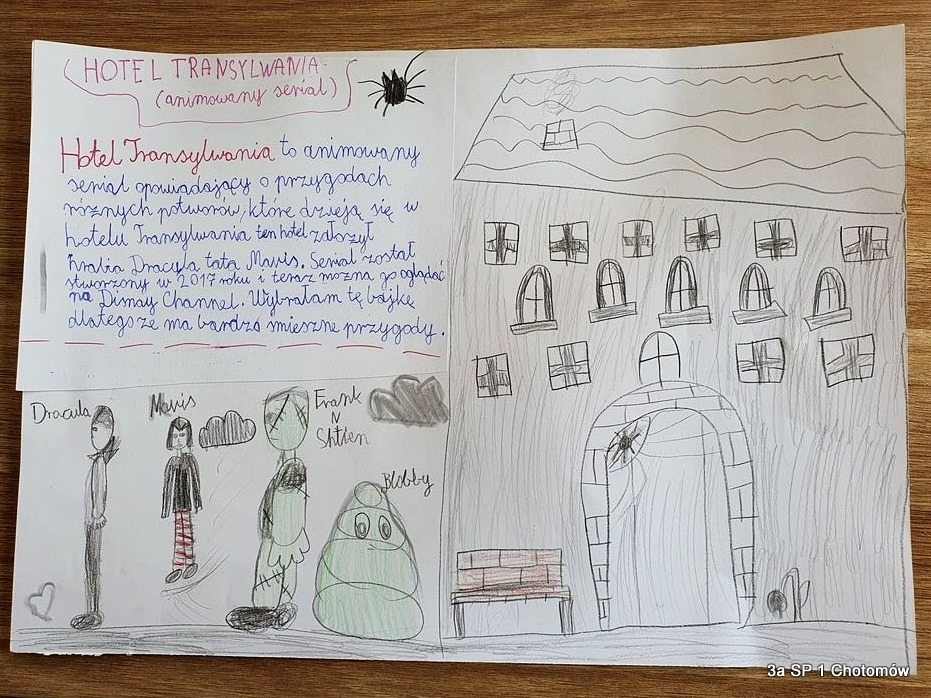 HOTEL TRANSYLWANIA
(animowany serial)
Hotel Transylwania to animowany
serial opowiadający o przygodach
różnych potworów, które dzieją się w
hotelu Transylwania ten hotel założył
hrabia Dracula tata Mavis. Serial został
stworzony w 2017 roku i teraz można go oglądać
na Disnay Channel. Wybrałam tę bajkę
dlatego że ma bardzo śmieszne przygody.
Dracula
Mavis
Frank
N
Shtien
Blobby
3a SP 1 Chotomów